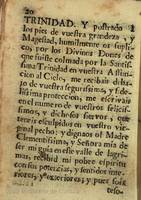 20
TRINIDAD. Y postrado à
los pies de vuestra grandeza, y
Magestad, humilmente os supli-
co, por los Divinos Dones de
que fuiste colmada por la Santissi-
ma Trinidad en vuestra Assun-
cion al Cielo, me recibais deba-
xo de vuestra segurissima, y fide-
lissima proteccion, me escrivais
en el numero de vuestros felicis-
simos, y dichosos siervos, que
teneis esculpidos en vuestro vir-
ginal pecho: y dignaos ò! Madre
Clementissima, y Señora mia de
ser mi guia en este valle de lagri-
mas, recibid mi pobre espiritu
con sus potencias, y sentidos inte-
riores, y exteriores; y pues sois
teso-